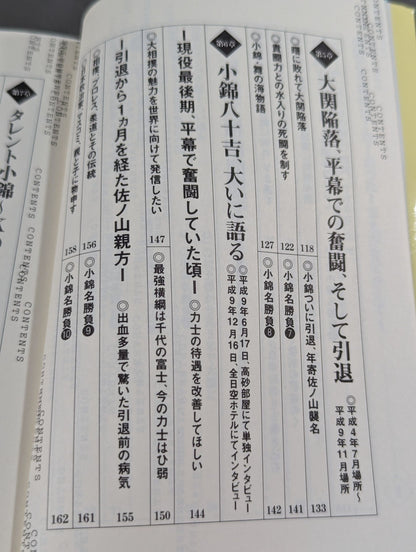 第5章
大関陥落、平幕での奮闘、そして引退
◎平成4年7月場所〜
平成9年11月場所
◎曙に敗れて大関陥落
118
◎小錦ついに引退、年寄佐ノ山襲名
133
◎貴闘力との水入りの死闘を制す
122
◎小錦名勝負⑦
141
◎小錦・舞の海物語
127
◎小錦名勝負⑧
142
第6章
小錦八十吉、大いに語る
◎平成9年6月17日、高砂部屋にて単独インタビュー
◎平成9年12月16日、全日空ホテルにてインタビュー
ー現役最後期、平幕で奮闘していた頃ー
◎力士の待遇を改善してほしい
144
◎大相撲の魅力を世界に向けて発信したい
147
◎最強横綱は千代の富士、今の力士はひ弱
150
ー引退から1カ月を経た佐ノ山親方ー
◎出血多量で驚いた引退前の病気
155
◎相撲、プロレス、柔道とその伝統
156
◎小錦名勝負⑨
161
マスコミ、親と子に物申す
158
◎小錦名勝負⑩
162
第7章
タレント小錦
CONTENTS CONTENTS CONTENTS
CONTENTS CONTENTS